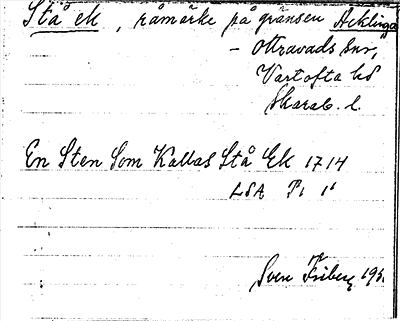 Stå ek, råmärke på gränsen Acklinga
- Ottravads snr,
Vartofta hd
Skarab. l.
En Sten Som Kallas Stå Ek 1714
LSA P1 1¹
Sven Friberg 195